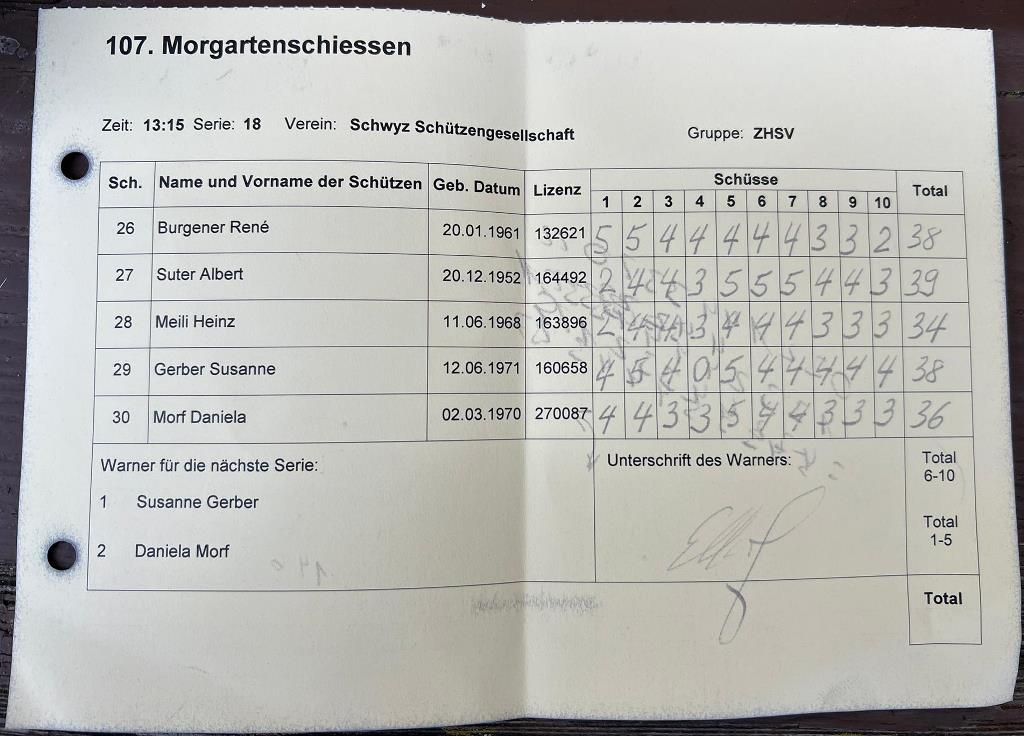 107. Morgartenschiessen
Zeit: 13:15 Serie: 18 Verein: Schwyz Schützengesellschaft Gruppe: ZHSV
Sch. Name und Vorname der Schützen Geb. Datum Lizenz Schüsse Total
1 2 3 4 5 6 7 8 9 10
26 Burgener René 20.01.1961 132621 5 5 4 4 4 4 4 3 3 2 38
27 Suter Albert 20.12.1952 164492 2 4 4 3 5 5 5 4 4 3 39
28 Meili Heinz 11.06.1968 163896 2 4 4 3 4 4 4 3 3 3 34
29 Gerber Susanne 12.06.1971 160658 4 5 4 0 5 4 4 4 4 4 38
30 Morf Daniela 02.03.1970 270087 4 4 3 3 5 4 4 3 3 3 36
Warner für die nächste Serie: Unterschrift des Warners: Total
6-10
1 Susanne Gerber
Total
1-5
2 Daniela Morf
Total